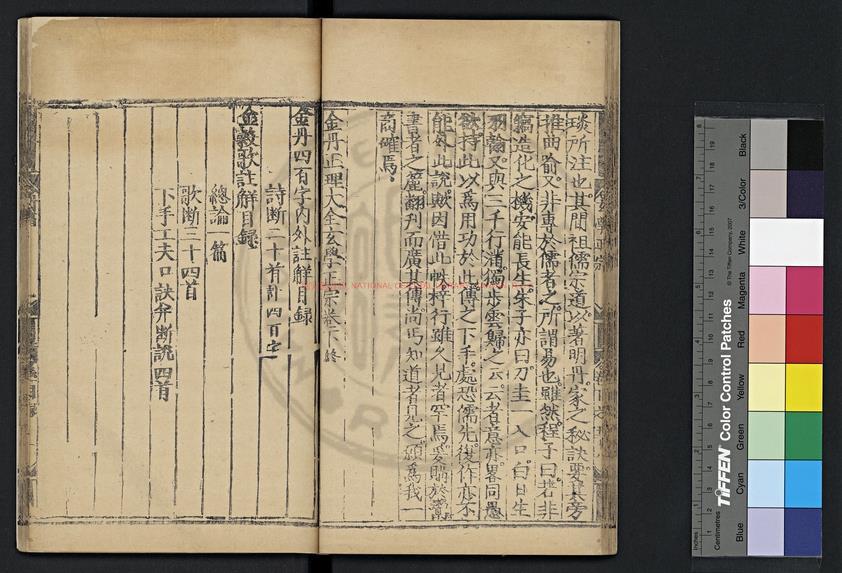 琰所注也其間祖儒宗道以著明丹家之秘訣要其旁
推曲喻又非專於儒者之所謂易也雖然程子曰若非
竊造化之機安能長生朱子亦曰刀圭一入口白日生
羽翰又與三千行滿獨步雲歸之云云者意亦畧同愚
欲持此以爲用功於此傳之下手處恐儒先復作亦不
能外此說歟因借此帙梓行雖久見者罕焉爰購於
書者之簏翻刋而廣其傳尚丐知道者見之願爲我一
商確焉
金丹正理大全玄學正宗卷下終
金丹四百字內外註解目録
詩斷二十首計四百字
金穀歌註解目録
總論一篇
歌斷三十四首
下手工夫口訣并斷說四首
TIFFEN Color Control Patches
© The Tiffen Company, 2007
Centimetres
Inches
Blue
Cyan
Green
Yellow
Red
Magenta
White
3/Color
Black